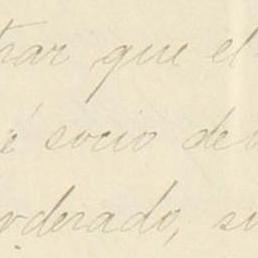 trar que el
é socio de
poderado, su